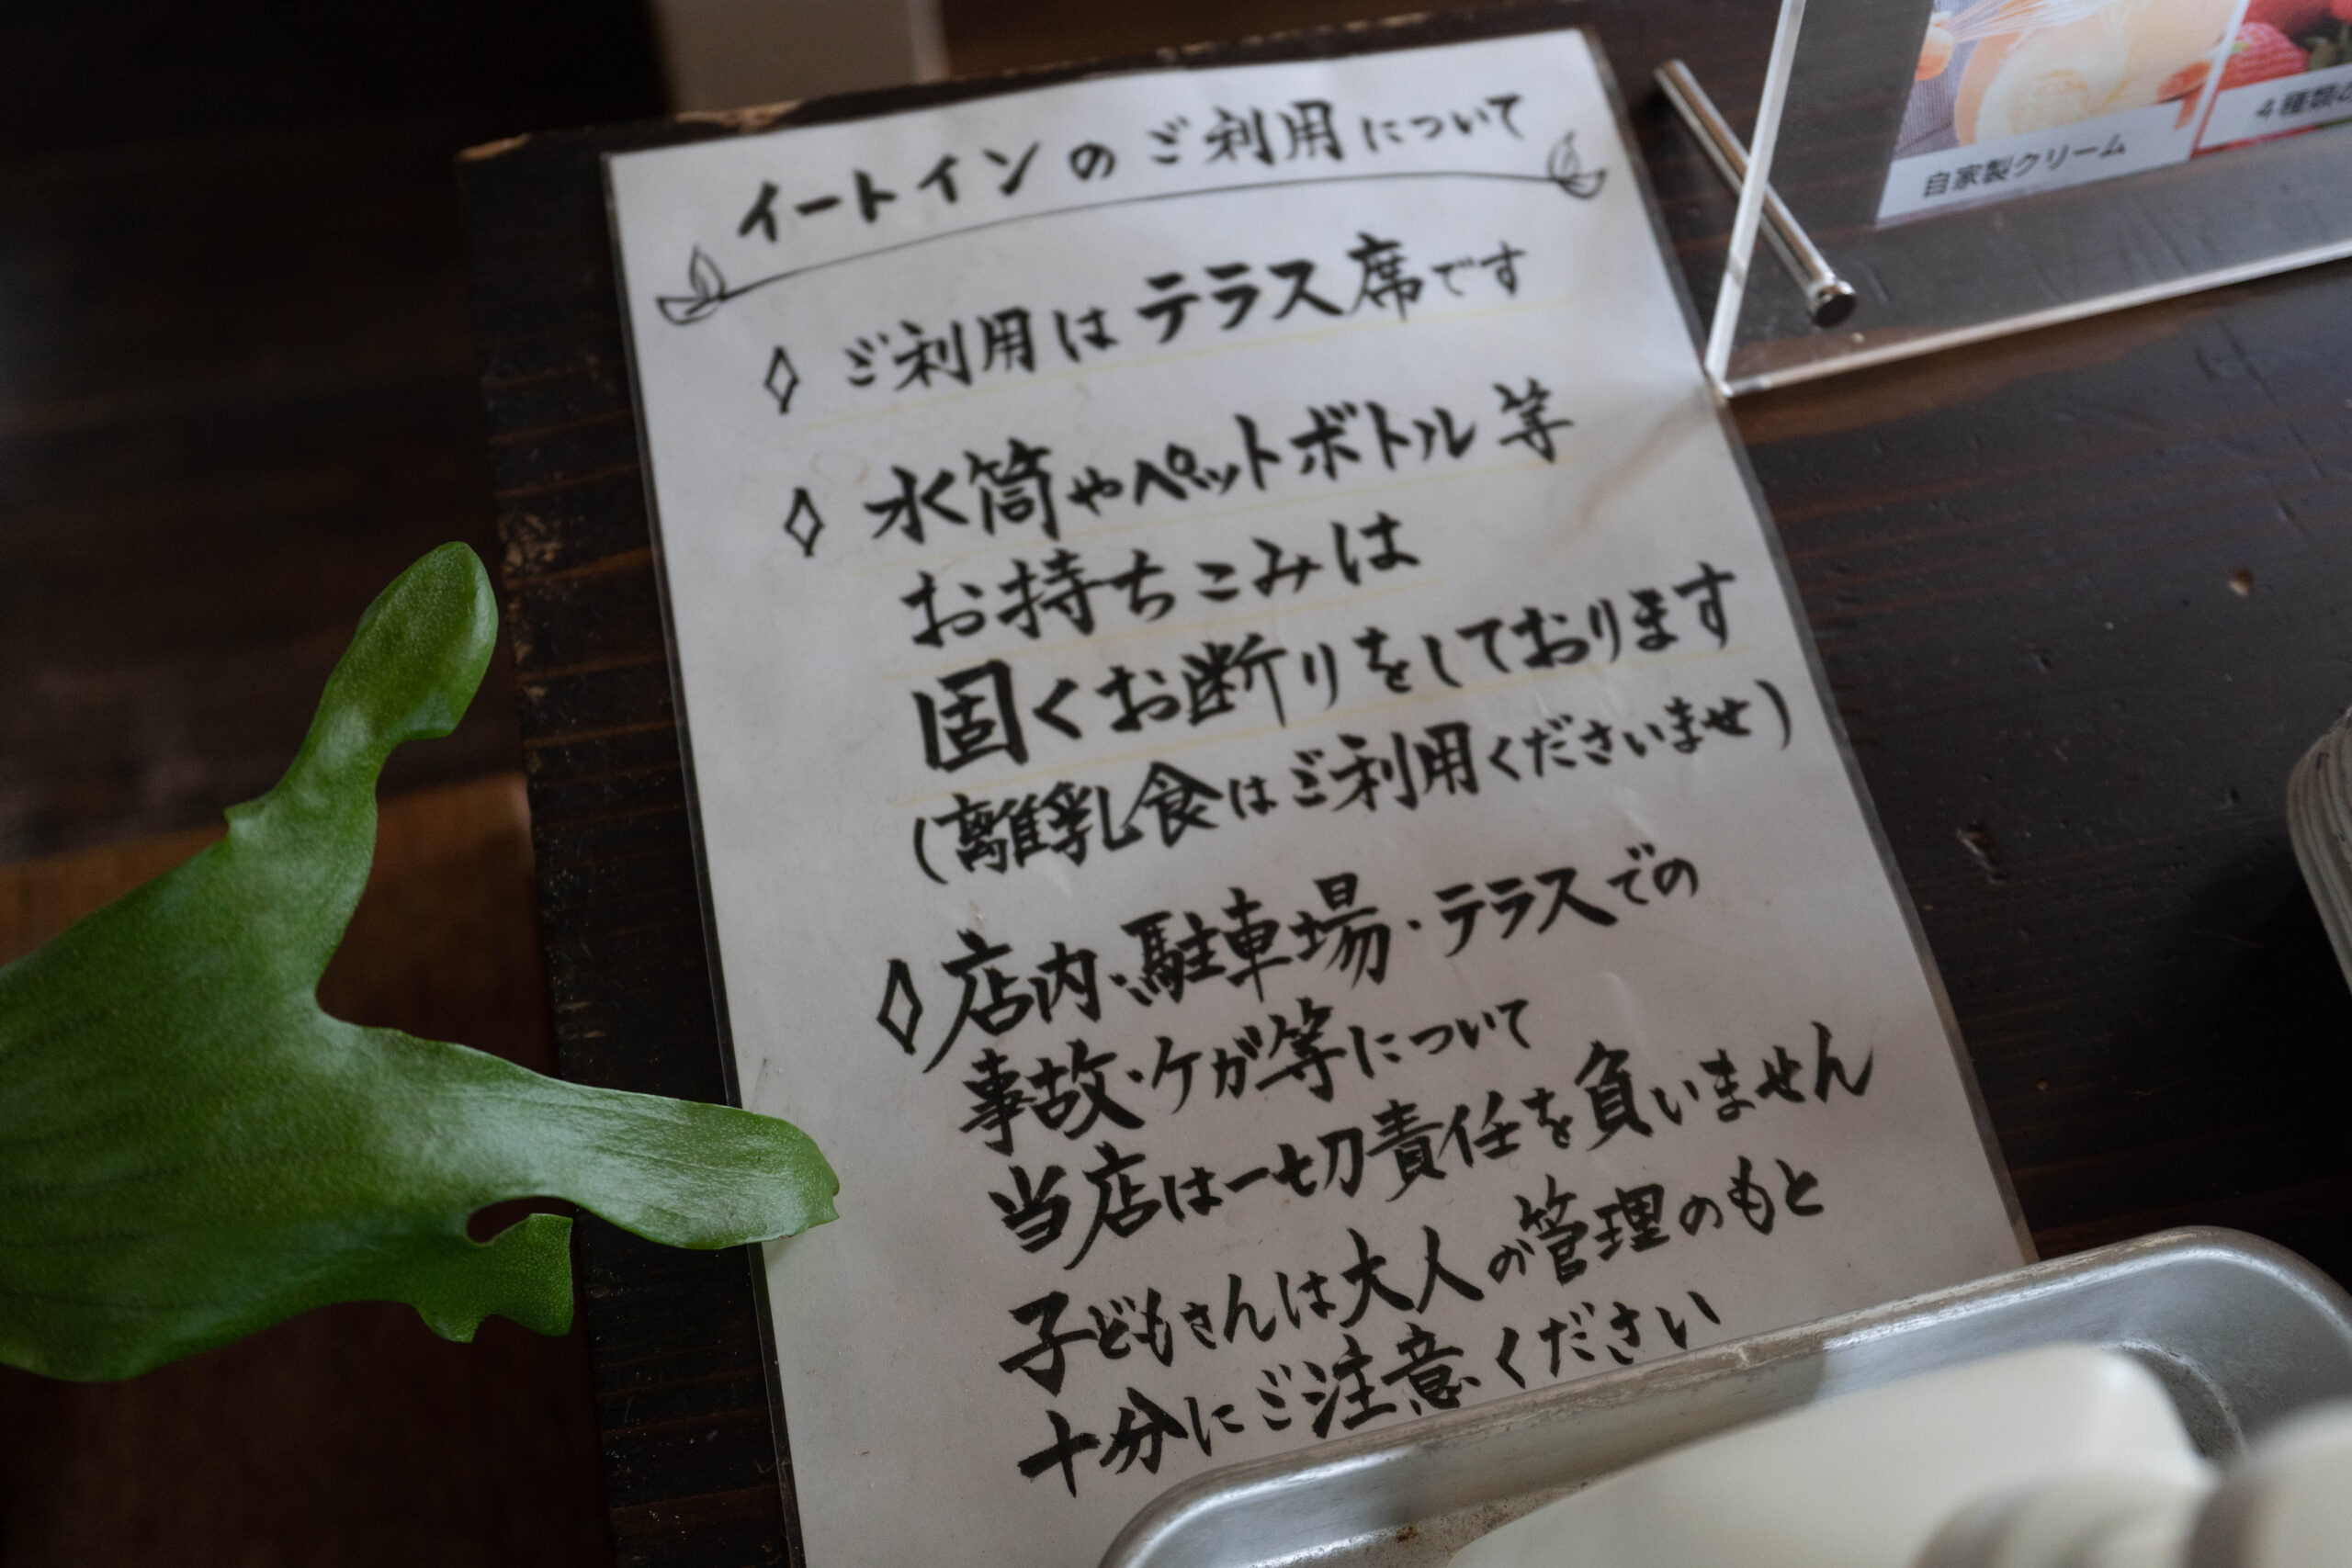 イートインのご利用について
◇ ご利用はテラス席です
◇ 水筒やペットボトル等
お持ちこみは
固くお断りをしております
(離乳食はご利用くださいませ)
◇ 店内・駐車場・テラスでの
事故・ケガ等について
当店は一切責任を負いません
子どもさんは大人の管理のもと
十分にご注意ください
自家製クリーム
4種類の